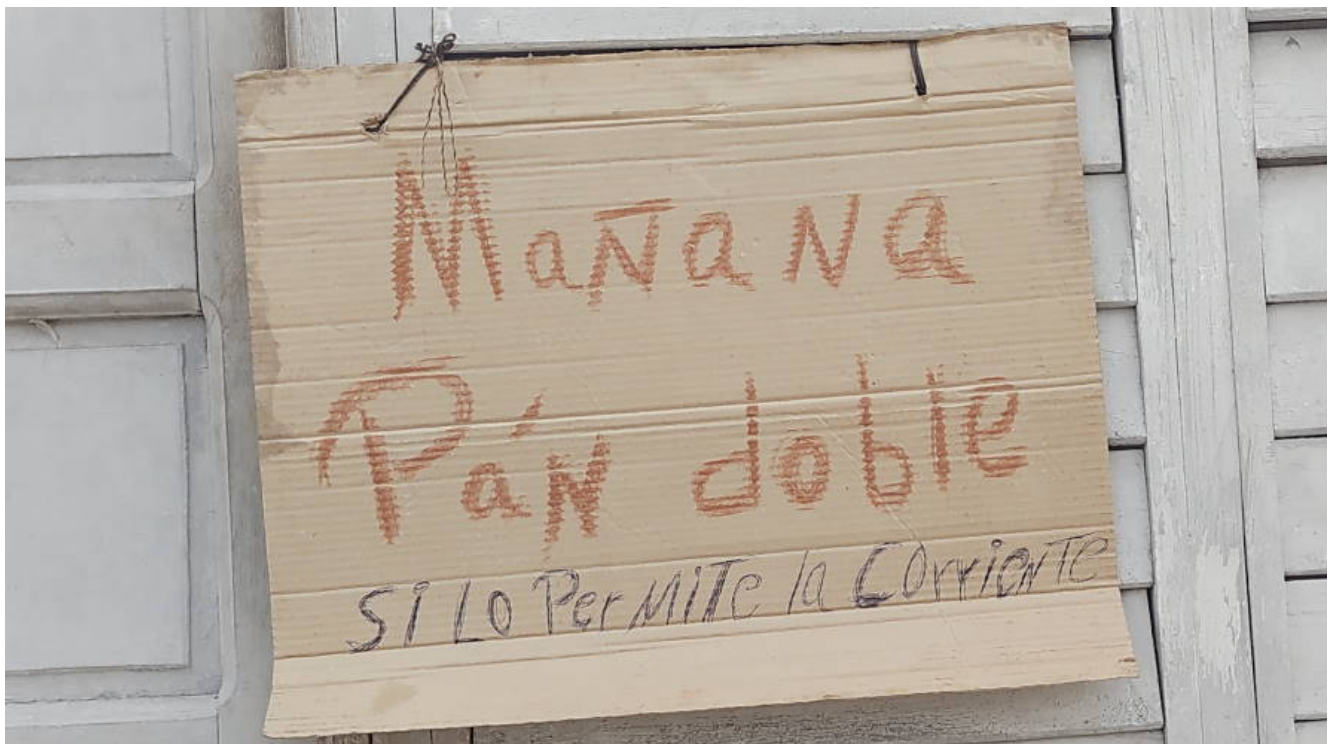 Mañana
Pán doble
SI LO PerMITe la Corriente